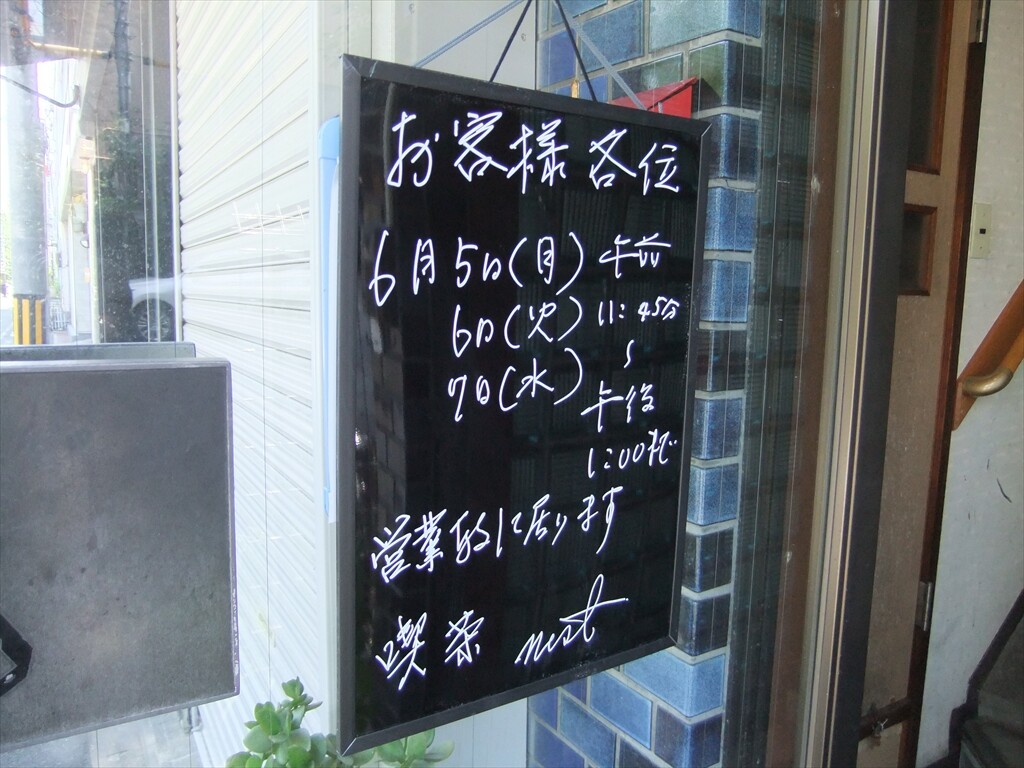 お客様各位
6月5日(月) 午前
6日(火) 11:45分
7日(水) 〜
午後
1:00まで
営業致して居ります
喫茶 nest